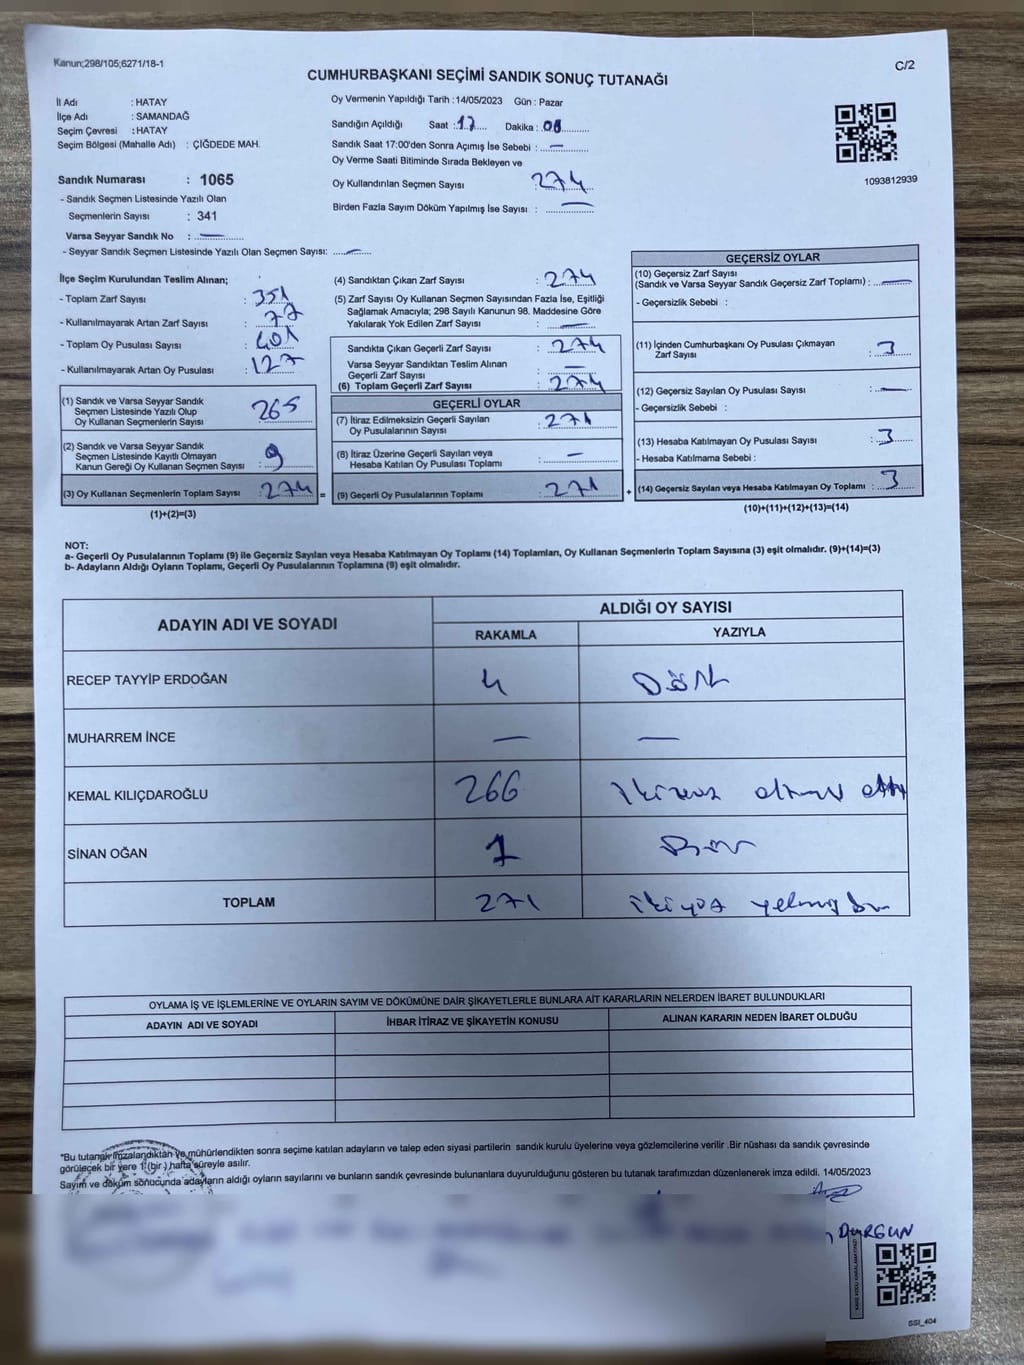 Kanun;298/105;6271/18-1
C/2
CUMHURBAŞKANI SEÇİMİ SANDIK SONUÇ TUTANAĞI
İl Adı : HATAY
İlçe Adı : SAMANDAĞ
Seçim Çevresi : HATAY
Seçim Bölgesi (Mahalle Adı) : ÇİĞDEDE MAH.
Sandık Numarası : 1065
- Sandık Seçmen Listesinde Yazılı Olan
Seçmenlerin Sayısı : 341
Varsa Seyyar Sandık No : —
- Seyyar Sandık Seçmen Listesinde Yazılı Olan Seçmen Sayısı: —
Oy Vermenin Yapıldığı Tarih : 14/05/2023 Gün : Pazar
Sandığın Açıldığı Saat : 17 Dakika : 08
Sandık Saat 17:00'den Sonra Açımış İse Sebebi : —
Oy Verme Saati Bitiminde Sırada Bekleyen ve
Oy Kullandırılan Seçmen Sayısı 274
Birden Fazla Sayım Döküm Yapılmış İse Sayısı : —
1093812939
İlçe Seçim Kurulundan Teslim Alınan;
- Toplam Zarf Sayısı : 351
- Kullanılmayarak Artan Zarf Sayısı : 77
- Toplom Oy Pusulası Sayısı : 401
- Kullanılmayarak Artan Oy Pusulası : 127
(1) Sandık ve Varsa Seyyar Sandık
Seçmen Listesinde Yazılı Olup
Oy Kullanan Seçmenlerin Sayısı 265
(2) Sandık ve Varsa Seyyar Sandık
Seçmen Listesinde Kayıtlı Olmayan
Kanun Gereği Oy Kullanan Seçmen Sayısı : 9
(3) Oy Kullanan Seçmenlerin Toplam Sayısı : 274 =
(1)+(2)=(3)
(4) Sandıktan Çıkan Zarf Sayısı : 274
(5) Zarf Sayısı Oy Kullanan Seçmen Sayısından Fazla İse, Eşitliği
Sağlamak Amacıyla; 298 Sayılı Kanunun 98. Maddesine Göre
Yakılarak Yok Edilen Zarf Sayısı : —
Sandıkta Çıkan Geçerli Zarf Sayısı : 274
Varsa Seyyar Sandıktan Teslim Alınan
Geçerli Zarf Sayısı : —
(6) Toplam Geçerli Zarf Sayısı : 274
GEÇERLİ OYLAR
(7) İtiraz Edilmeksizin Geçerli Sayılan
Oy Pusulalarının Sayısı : 271
(8) İtiraz Üzerine Geçerli Sayılan veya
Hesaba Katılan Oy Pusulası Toplamı : —
(9) Geçerli Oy Pusulalarının Toplamı : 271 +
GEÇERSİZ OYLAR
(10) Geçersiz Zarf Sayısı
(Sandık ve Varsa Seyyar Sandık Geçersiz Zarf Toplamı) : —
- Geçersizlik Sebebi :
(11) İçinden Cumhurbaşkanı Oy Pusulası Çıkmayan
Zarf Sayısı : 3
(12) Geçersiz Sayılan Oy Pusulası Sayısı : —
- Geçersizlik Sebebi :
(13) Hesaba Katılmayan Oy Pusulası Sayısı : 3
- Hesaba Katılmama Sebebi :
(14) Geçersiz Sayılan veya Hesaba Katılmayan Oy Toplamı : 3
(10)+(11)+(12)+(13)=(14)
NOT:
a- Geçerli Oy Pusulalarının Toplamı (9) ile Geçersiz Sayılan veya Hesaba Katılmayan Oy Toplamı (14) Toplamları, Oy Kullanan Seçmenlerin Toplam Sayısına (3) eşit olmalıdır. (9)+(14)=(3)
b- Adayların Aldığı Oyların Toplamı, Geçerli Oy Pusulalarının Toplamına (9) eşit olmalıdır.
ADAYIN ADI VE SOYADI ALDIĞI OY SAYISI
RAKAMLA YAZIYLA
RECEP TAYYİP ERDOĞAN 4 Dört
MUHARREM İNCE — —
KEMAL KILIÇDAROĞLU 266 ikiyüz altmış altı
SİNAN OĞAN 1 Bir
TOPLAM 271 ikiyüz yetmiş bir
OYLAMA İŞ VE İŞLEMLERİNE VE OYLARIN SAYIM VE DÖKÜMÜNE DAİR ŞİKAYETLERLE BUNLARA AİT KARARLARIN NELERDEN İBARET BULUNDUKLARI
ADAYIN ADI VE SOYADI İHBAR İTİRAZ VE ŞİKAYETİN KONUSU ALINAN KARARIN NEDEN İBARET OLDUĞU
"Bu tutanak imzalandıktan ve mühürlendikten sonra seçime katılan adayların ve talep eden siyasi partilerin sandık kurulu üyelerine veya gözlemcilerine verilir .Bir nüshası da sandık çevresinde
görülecek bir yere 1 (bir ) hafta süreyle asılır.
Sayım ve döküm sonucunda adayların aldığı oyların sayılarını ve bunların sandık çevresinde bulunanlara duyurulduğunu gösteren bu tutanak tarafımızdan düzenlenerek imza edildi. 14/05/2023
DURGUN
SSI_404